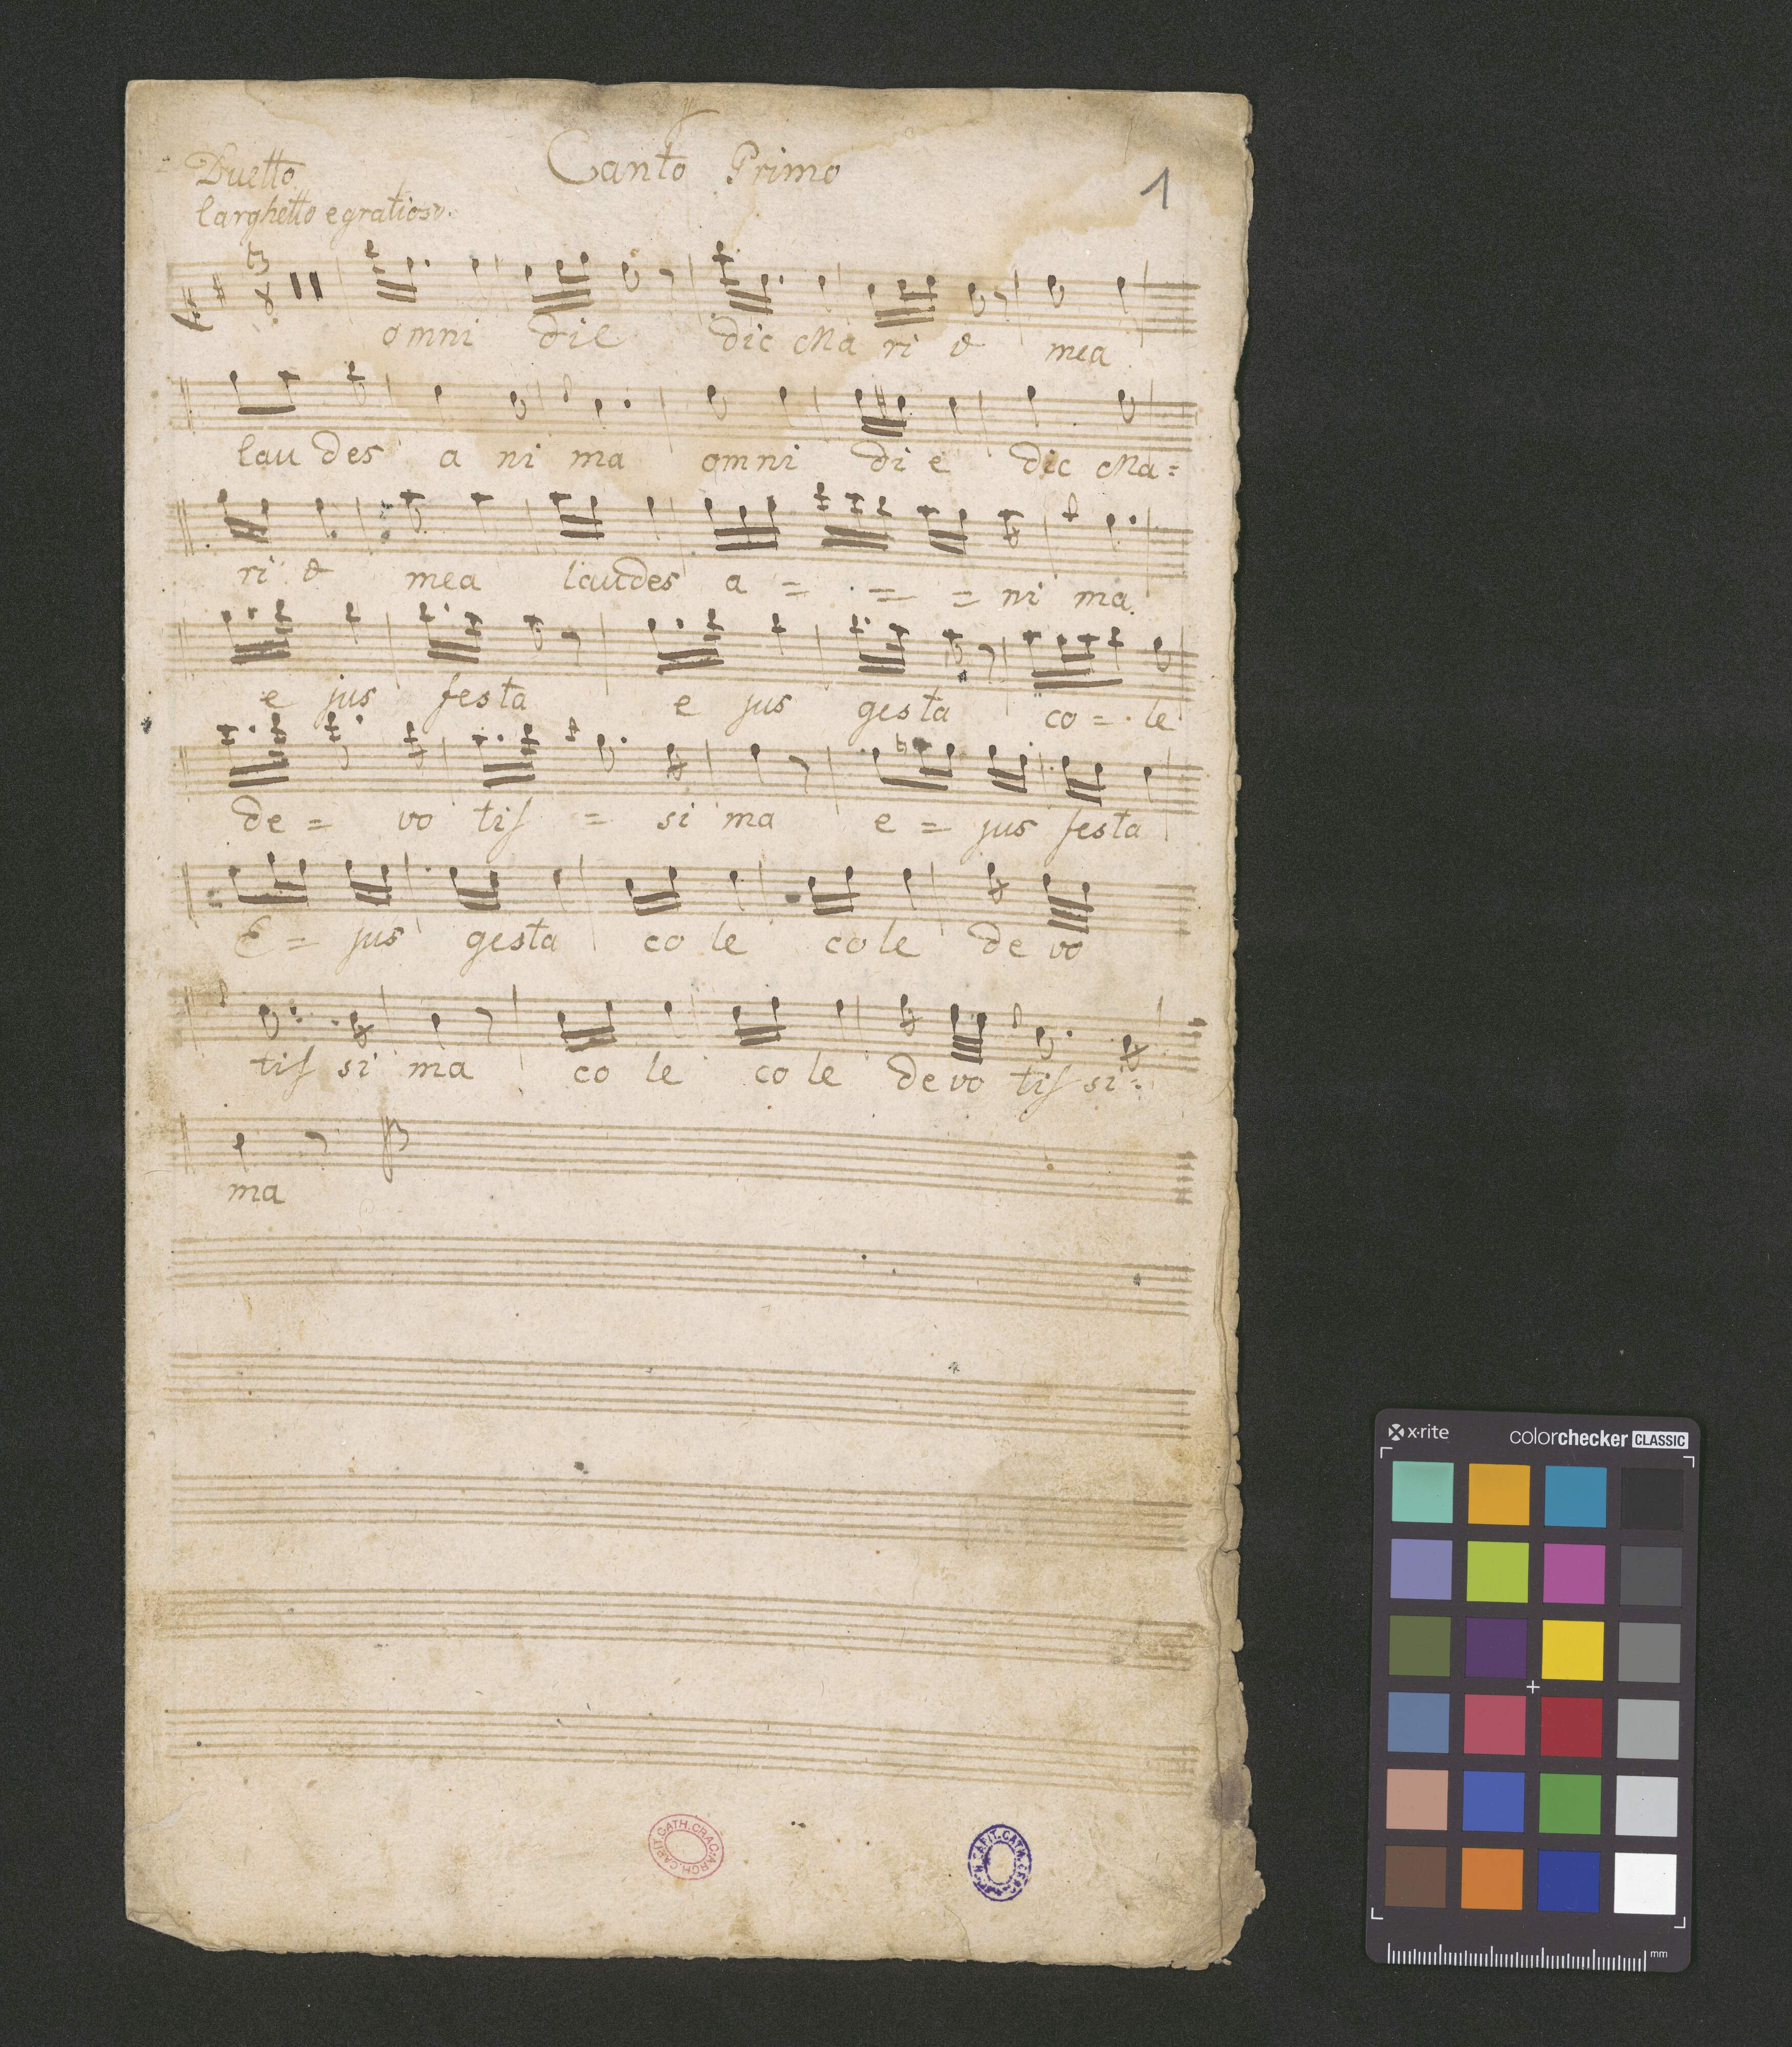 Canto Primo
1
Duetto
larghetto e gratioso.
3
8
omni die dic Ma ri æ mea
lau des a ni ma omni di e dic Ma=
ri æ mea laudes a = = = ni ma.
e jus festa e jus gesta co = le
de = vo tis = si ma e = jus festa
E = jus gesta co le co le de vo
tis si ma co le co le de vo tis si=
ma
ARCH. CAPIT. CATH. CRAC.
ARCH. CAPIT. CATH. CRAC.
x-rite
colorchecker CLASSIC
mm